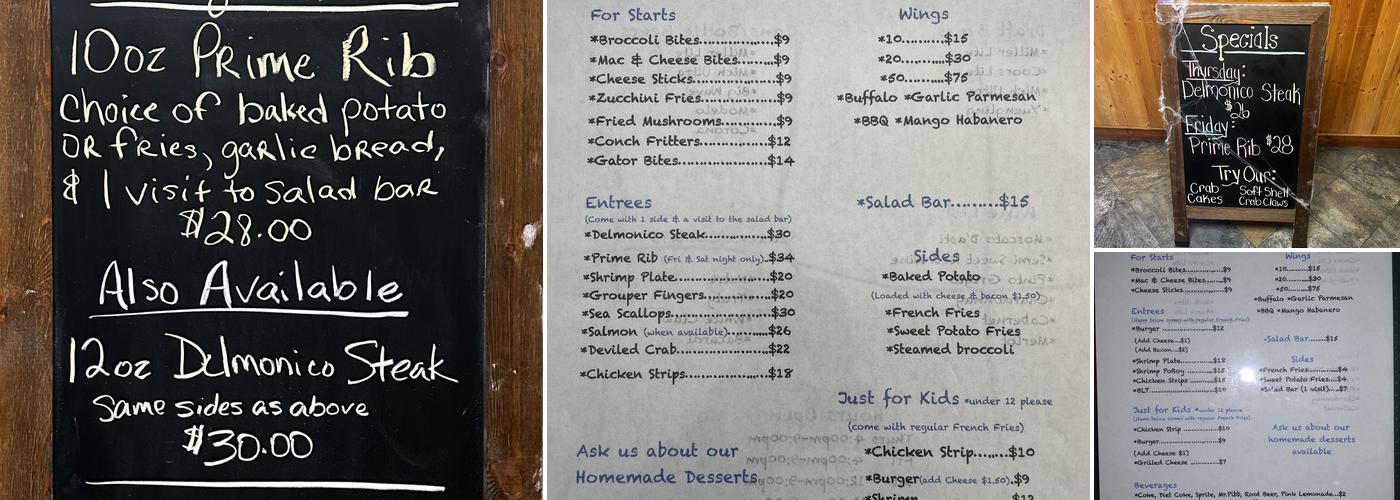 10oz Prime Rib
Choice of baked potato
OR fries, garlic bread,
& 1 visit to salad bar
$28.00
Also Available
12oz Delmonico Steak
Same sides as above
$30.00
For Starts
*Broccoli Bites..................$9
*Mac & Cheese Bites..........$9
*Cheese Sticks..................$9
*Zucchini Fries..................$9
*Fried Mushrooms.............$9
*Conch Fritters.................$12
*Gator Bites.....................$14
Entrees
(Come with 1 side & a visit to the salad bar)
*Delmonico Steak...............$30
*Prime Rib (Fri & Sat night only)..$34
*Shrimp Plate....................$20
*Grouper Fingers................$20
*Sea Scallops.....................$30
*Salmon (when available)........$26
*Deviled Crab....................$22
*Chicken Strips..................$18
Ask us about our
Homemade Desserts
Wings
*10..........$15
*20..........$30
*50..........$75
*Buffalo *Garlic Parmesan
*BBQ *Mango Habanero
*Salad Bar.........$15
Sides
*Baked Potato
(Loaded with cheese & bacon $1.50)
*French Fries
*Sweet Potato Fries
*Steamed broccoli
Just for Kids *under 12 please
(come with regular French Fries)
*Chicken Strip.......$10
*Burger(add Cheese $1.50).$9
Specials
Thursday:
Delmonico Steak
$26
Friday:
Prime Rib $28
Try Our:
Crab Cakes
Soft Shell
Crab Claws
For Starts
*Broccoli Bites..............$9
*Mac & Cheese Bites........$9
*Cheese Sticks..............$9
Entrees
(Items below comes with regular French Fries)
*Burger ....................$12
(Add Cheese...$1)
(Add Bacon...$2)
*Shrimp Plate..............$18
*Shrimp PoBoy.............$15
*Chicken Strips............$15
*BLT........................$10
Just for Kids *under 12 please
(Items below comes with regular French Fries)
*Chicken Strip.............$10
*Burger.....................$9
(Add Cheese $1)
*Grilled Cheese ...........$7
Beverages
*Coke, Diet Coke, Sprite, Mr.Pibb, Root Beer, Pink Lemonade...$2
Wings
*10..........$15
*20..........$30
*50..........$75
*Buffalo *Garlic Parmesan
*BBQ *Mango Habanero
*Salad Bar......$15
Sides
*French Fries..........$4
*Sweet Potato Fries...$4
*Salad Bar (1 visit)....$7
Ask us about our
homemade desserts
available